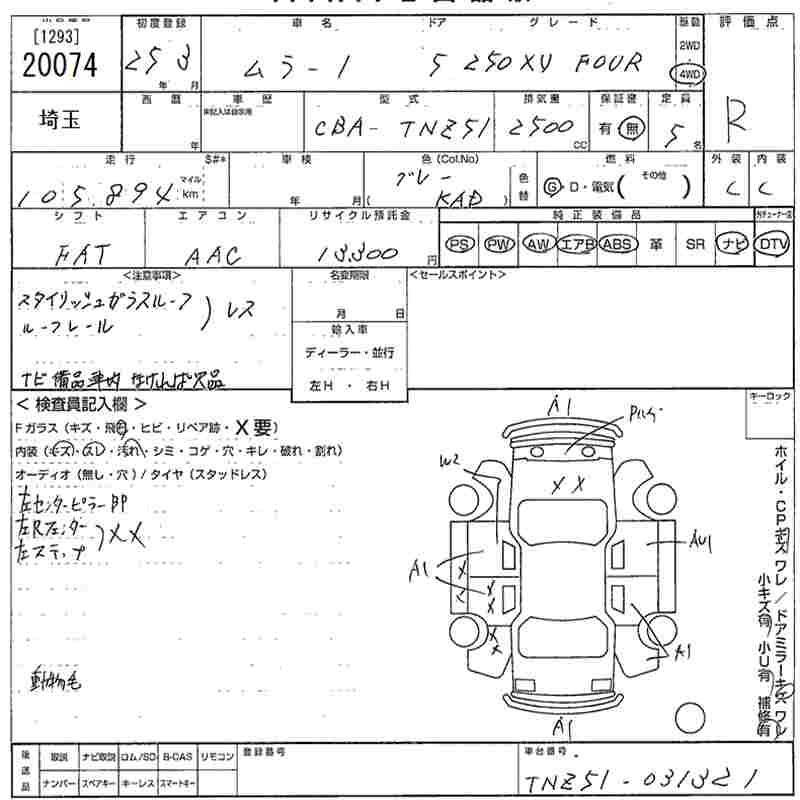 [1293]
20074
初度登録 車名 ドア グレード 駆動 評価点
25 3 ムラー1 5 250XV FOUR 2WD
年 月 4WD
埼玉
西暦 車歴 型式 排気量 保証書 定員
未記入は自家用
年 CBA- TNZ51 2500 CC 有・無 5名 R
走行 S#* 車検 色(Col.No) 燃料 外装 内装
105,894 マイル km 年 月 グレー ( KAD ) 色替 G・D・電気( その他 ) C C
シフト エアコン リサイクル預託金 純正装備品
FAT AAC 13,300 円 PS PW AW エアB ABS 革 SR ナビ DTV
<注意事項> 名変期限 <セールスポイント>
スタイリッシュガラスルーフ
ルーフレール ) レス
月 日
輸入車
ディーラー・並行
左H ・ 右H
ナビ備品車内なければ欠品
キーロック
< 検査員記入欄 >
Fガラス(キズ・飛石・ヒビ・リペア跡・X要)
内装(キズ・スレ・汚れ・シミ・コゲ・穴・キレ・破れ・割れ)
オーディオ(無し・穴)/タイヤ(スタッドレス)
左センターピラーBP
左Rフェンダー
左ステップ )XX
動物毛
A1
W2
XX
A1
AU1
A1
A1
ホイル・CPキズ ワレ/ドアミラーキズ ワレ
小キズ有 小U有 補修有
後送品 取説 ナビ取説 ロム/SD B-CAS リモコン 登録番号 車台番号
ナンバー スペアキー キーレス スマートキー TNZ51-031321